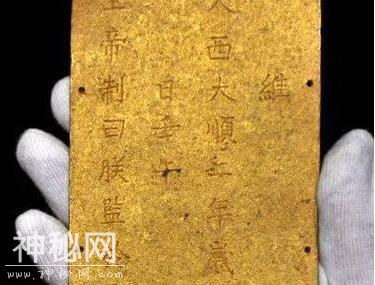 維
大西大順二年歲
日壬午
帝制曰朕監
神秘网